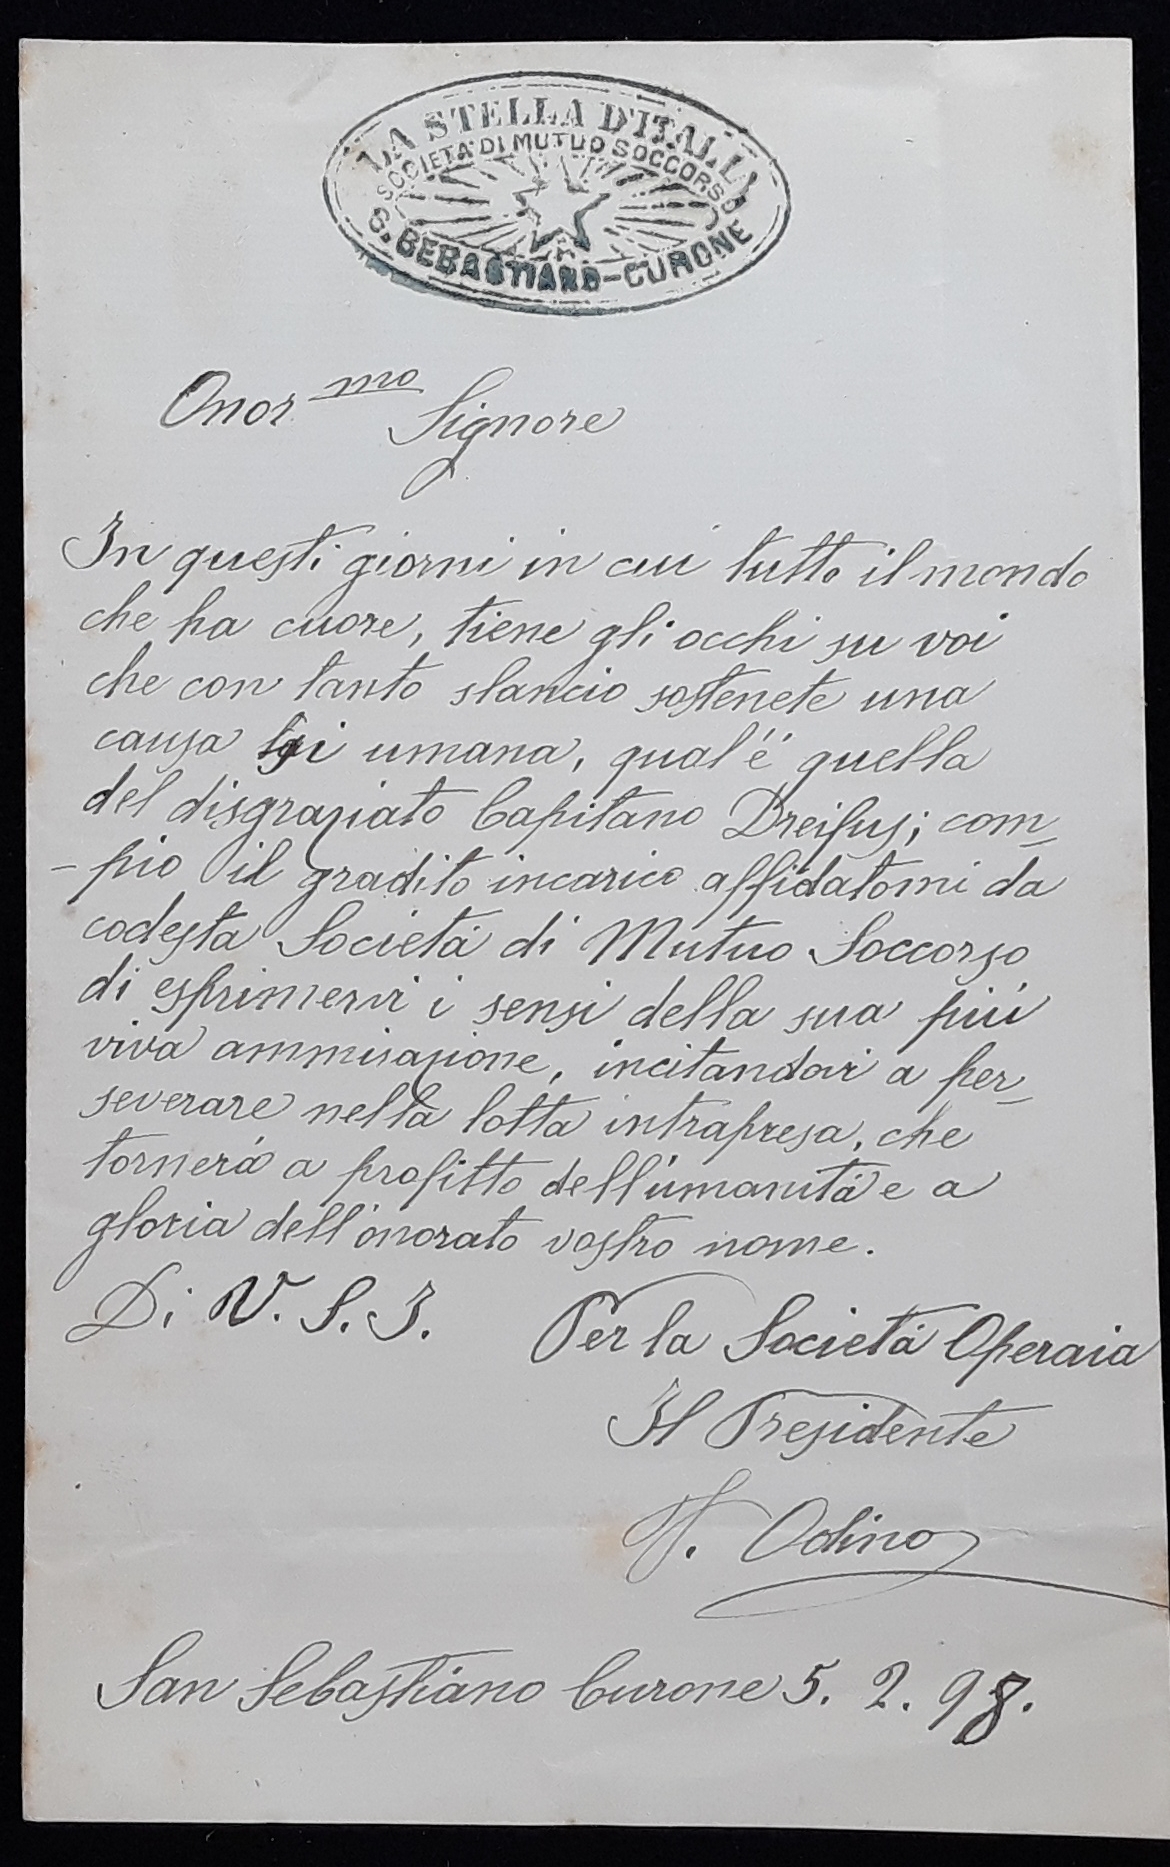 LA STELLA D'ITALIA
SOCIETÀ DI MUTUO SOCCORSO
S. SEBASTIANO-CURONE
Onor.mo Signore
In questi giorni in cui tutto il mondo
che ha cuore, tiene gli occhi su voi
che con tanto slancio sostenete una
causa sì umana, qual'é quella
del disgraziato Capitano Dreifus; com
-pio il gradito incarico affidatomi da
codesta Società di Mutuo Soccorso
di esprimervi i sensi della sua piú
viva ammirazione, incitandovi a per
severare nella lotta intrapresa, che
tornerá a profitto dell'umanitá e a
gloria dell'onorato vostro nome.
Di V. S. I.
Per la Societá Operaia
Il Presidente
Odino
San Sebastiano Curone 5. 2. 98.